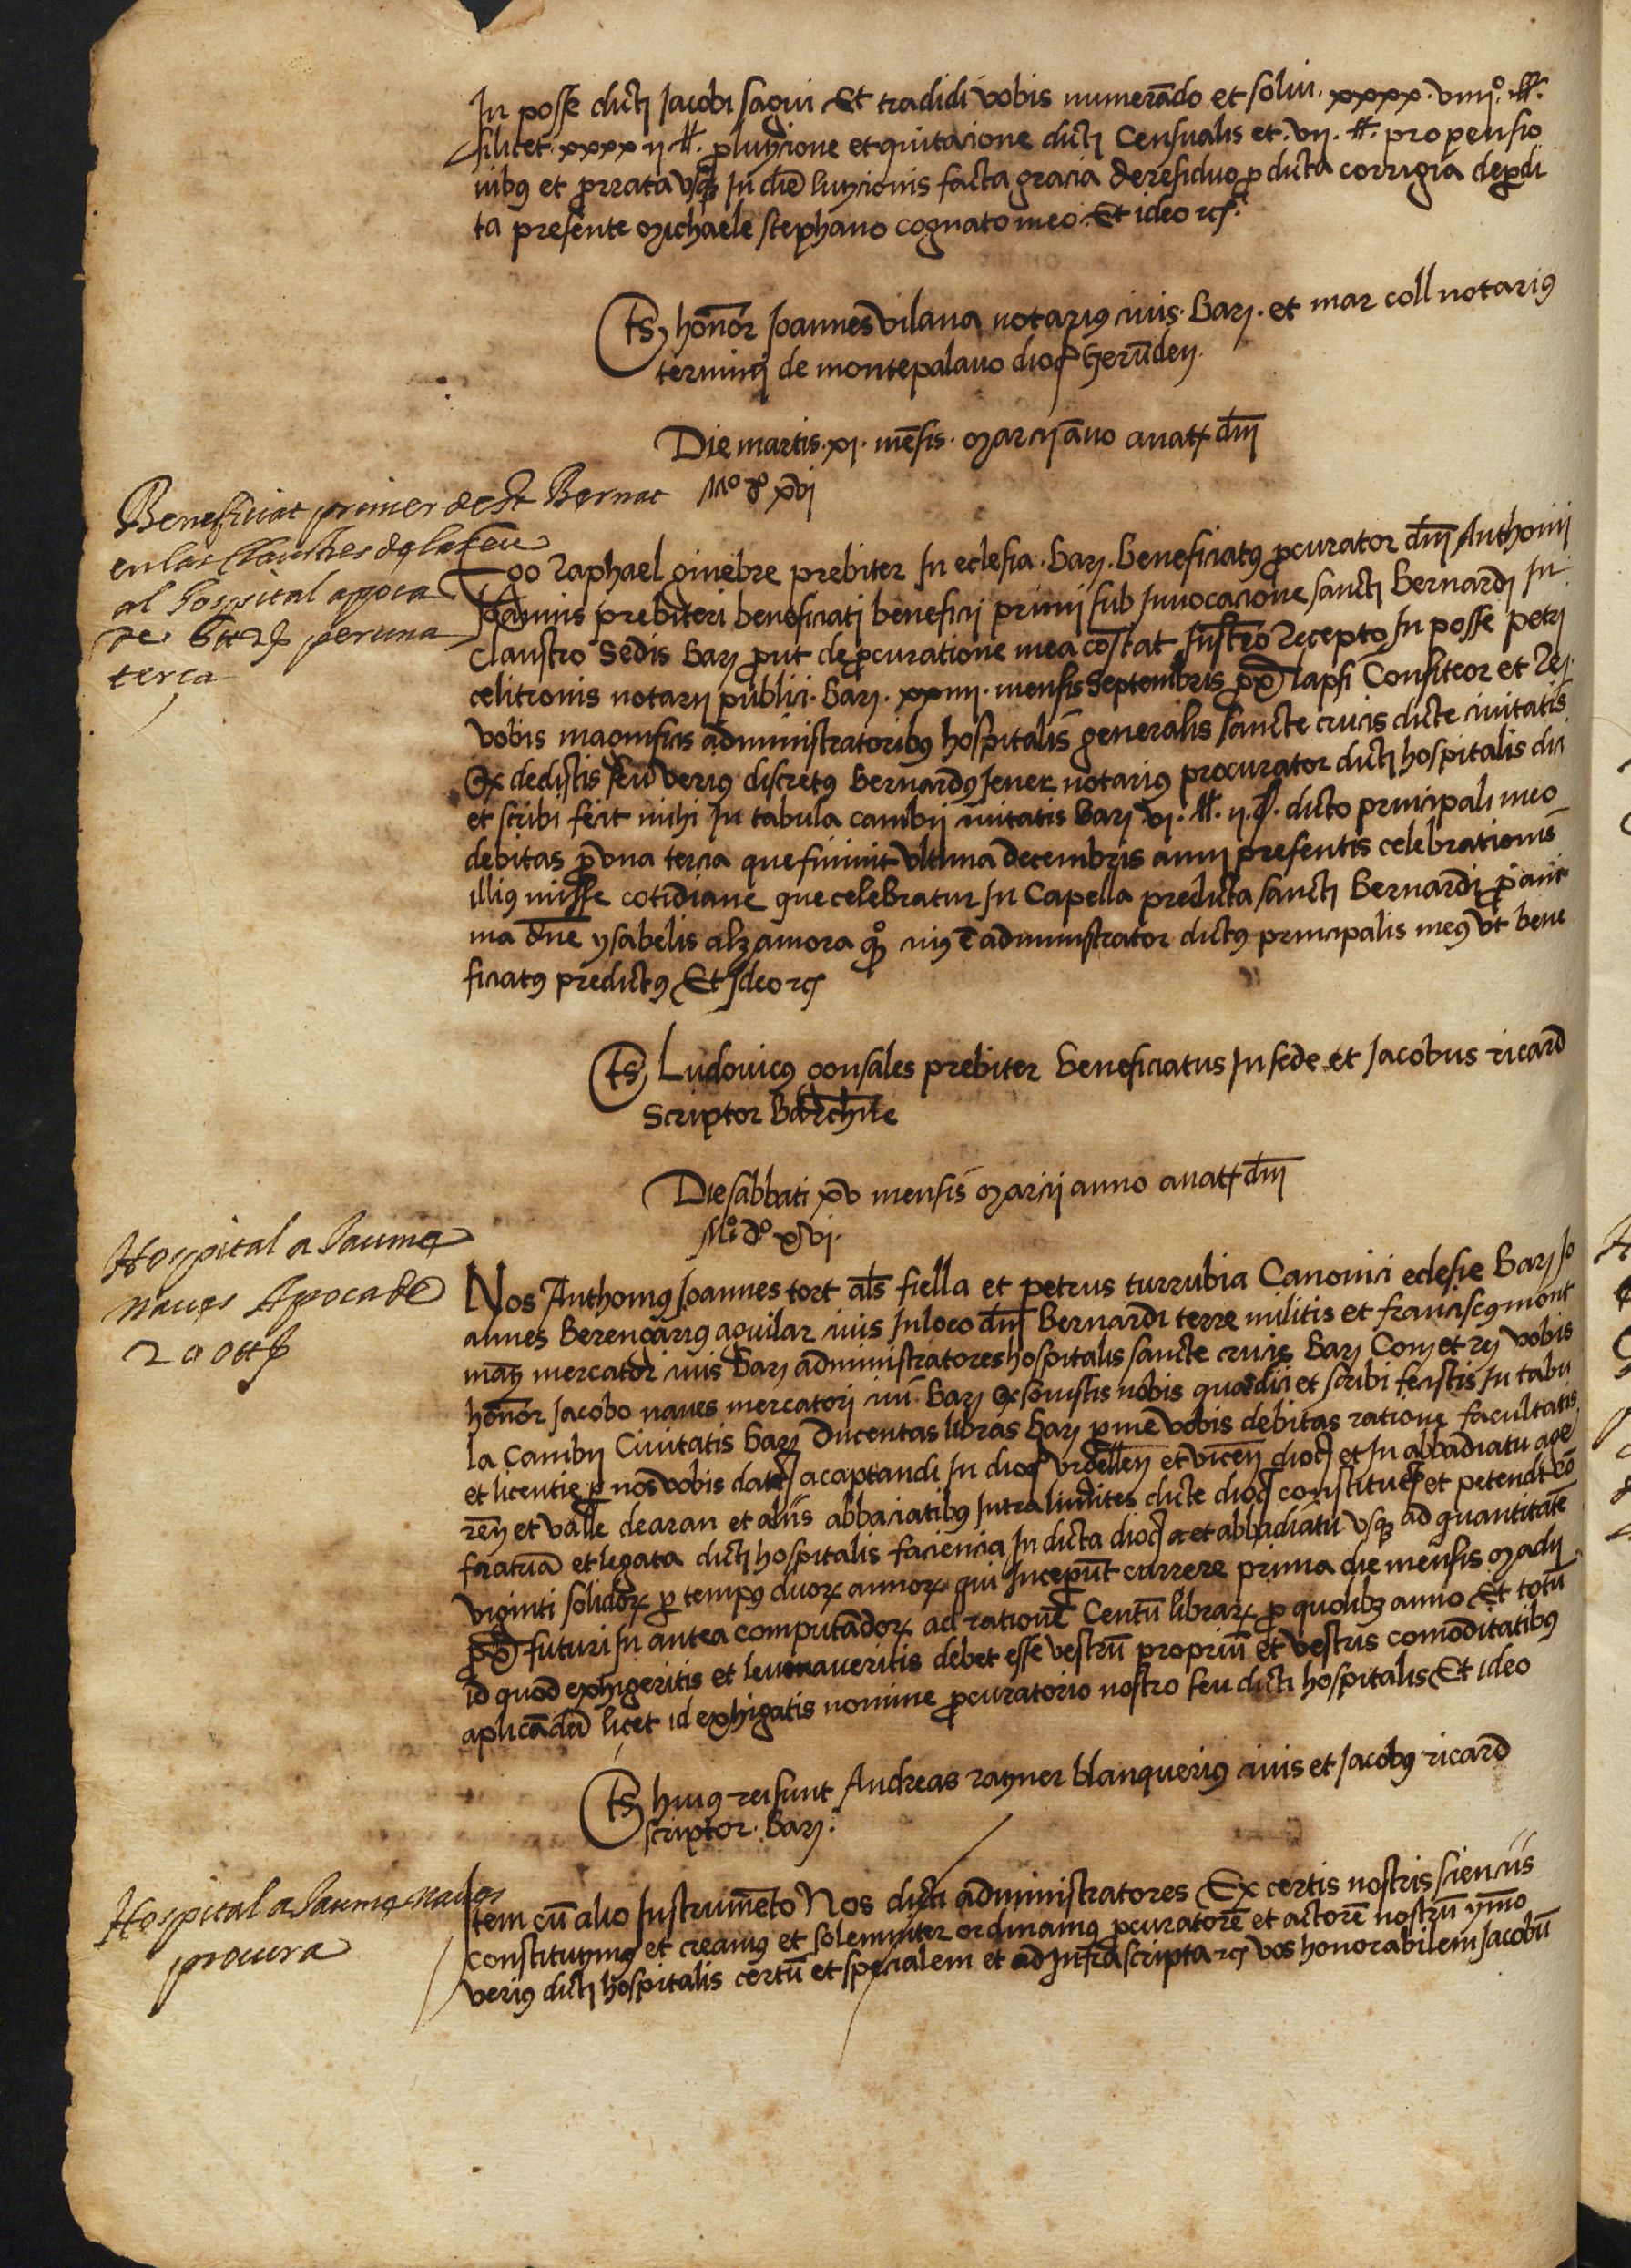 In posse dicti Jacobi sagui Et tradidi vobis numerãdo et solui. xxxx. viiijº. ₶.
silicet. xxxx ij ₶. p luyzione et quitacione dicti Censualis et. vij. ₶. pro pensio
nibꝯ et prrata vsqꝫ In diē luyzionis facta gracia de residuo p dicta corrigia depdi
ta presente Michaele stephano cognato meo. Et ideo rͨ.
Ts honor̃ Joannes vilana notariꝯ ciuis. Barͨ. et mar coll notariꝯ
terminj de montepalauo dioc̃ Gerũdeñ.
Die martis. xj. mēsis. Marcij ãno a natͭ dñj
Mº dº xvj
Beneficiat primer de St Bernat
en las Claustres de la seu
al Hospital apoca
de 6 ₶ 2 ß per una
terça
Ego Raphael ginebre prebiter In eclesia. Barͨ. beneficiatꝯ pcurator dñj Anthonij
prebiteri beneficiati beneficij primi sub Inuocacione sancti bernardj In
claustro Sedis Barͨ put de pcuratione mea cõstat Instr̃o Recepto In posse petri
celitronis notarij publici. Barͨ. xxiiij. mensis Septembris px̃ lapsi Confiteor et Reͨ.
vobis magnificis administratoribꝯ hospitalis generalis sancte crucis dicte ciuitatis
Qꝫ dedistis seu veriꝯ discretꝯ bernardꝯ Jener notariꝯ procurator dicti hospitalis dici
et scribi fecit michi In tabula cambij ciuitatis Barͨ. vj. ₶. ij. ß. dicto principali meo
debitas p vna tercia que finiuit vltima decembris anni presentis celebrationis
illiꝯ misse cotidiane que celebratur In Capella predicta sancti bernardi p ani
ma dñe ysabelis alzamora qº cuiꝯ ē administrator dictꝯ principalis meꝯ vt bene
ficiatꝯ predictꝯ Et Ideo rͨ
Ts Ludouicꝯ gonsales prebiter beneficiatus In sede et Jacobus ricard
Scriptor Barchñe
Die sabbati xv mensis Marcij anno a natͭ dñj
Mº dº xvj.
Hospital a Jaume
naues Apoca de
200 ₶
Nos Anthoniꝯ Joannes tort als fiella et petrus turrubia Canonici eclesie Barͨ Jo
annes Berengariꝯ aguilar ciuis In loco dñj Bernardi terre militis et franciscꝯ mont
many mercator ciuis Barͨ administratores hospitalis sancte crucis Barͨ Conͭ et reͨ vobis
honor̃ Jacobo naues mercatori ciui. Barͨ Qꝫ soluistis nobis quia dici et scribi fecistis In tabu
la Cambij Ciuitatis Barͨ Ducentas libras Barͨ p me vobis debitas ratione facultatis
et licentie p nos vobis date acaptandi In dioc̃ vrgelleñ et viceñ dioc̃ et In abbadiatu age
reñ et valle de aran et aliis abbaciatibꝯ Intra limites dicte dioc̃ constitutͭ et petendi cõ
fratriã et legata dicti hospitalis faciencia In dicta dioc̃ a et abbadiatu vsqꝫ ad quantitatē
viginti solidoꝝ p tempꝯ duoꝝ annoꝝ qui Inceperũt currere prima die mensis Madij
px̃ futuri In antea computãdoꝝ ad rationē Centũ libraꝝ p quolibꝫ anno Et totũ
id quod exhigeritis et leuaueritis debet esse vestrũ propriũ et vestris comoditatibꝯ
aplicãdũ licet id exhigatis nomine pcuratorio nostro seu dicti hospitalis Et ideo
Ts huiꝯ rei sunt Andreas rayner blanqueriꝯ ciuis et Jacobꝯ ricard
scriptor. Barͨ.
Hospital a Jaume naues
procura
Item cũ alio Instrumēto Nos dicti administratores Ex certis nostris sienciis
constituymꝯ et creamꝯ et solemniter ordinamꝯ pcuratorē et actorē nostrũ ymo
veriꝯ dicti hospitalis certũ et specialem et ad Infrascripta rͨ vos honorabilem Jacobũ